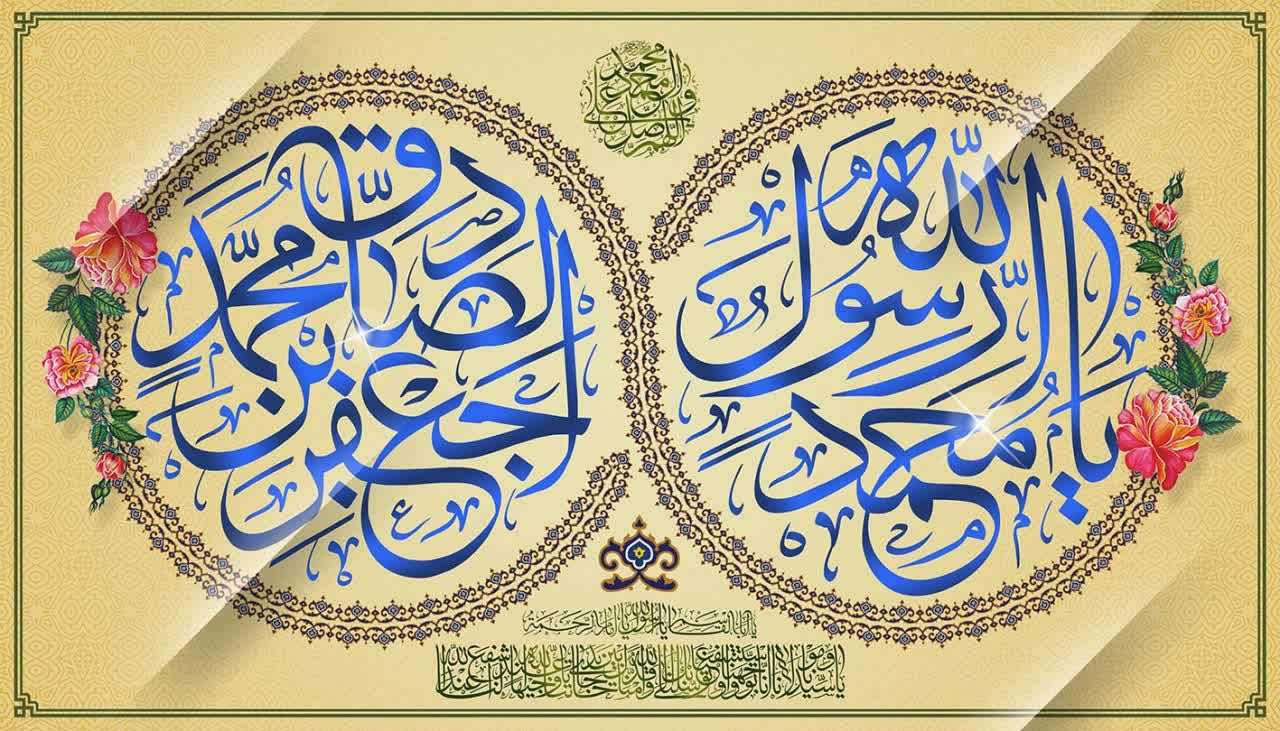 اللهم صل علی محمد وآل محمد
یا محمد الرسول الله
جعفر ابن محمد الصادق
یا اباالقاسم یا رسول الله یا امام الرحمة
یا سیدنا ومولانا انا توجهنا واستشفعنا وتوسلنا بک الی الله وقدمناک بین یدی حاجاتنا یا وجیها عند الله اشفع لنا عند الله